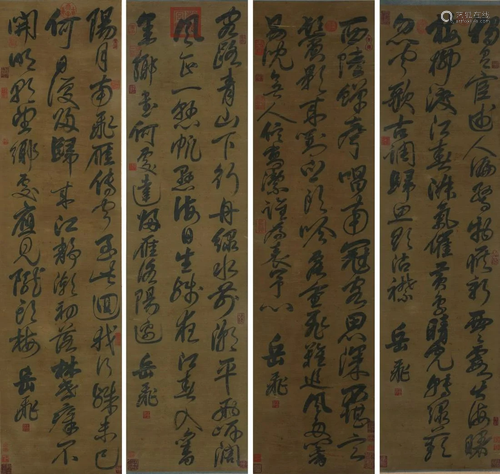 獨有宦遊人偏驚物候新雲霞出海曙
梅柳渡江春淑氣催黃鳥晴光轉綠蘋
忽聞歌古調歸思欲沾襟 岳飛
西陸蟬聲唱南冠客思深不堪玄
鬢影來對白頭吟露重飛難進風多響
易沈無人信高潔誰為表予心 岳飛
客路青山下行舟綠水前潮平兩岸闊
風正一帆懸海日生殘夜江春入舊
年鄉書何處達歸雁洛陽邊 岳飛
陽月南飛雁傳聞至此回我行殊未已
何日復歸來江靜潮初落林昏瘴不
開明朝望鄉處應見隴頭梅 岳飛